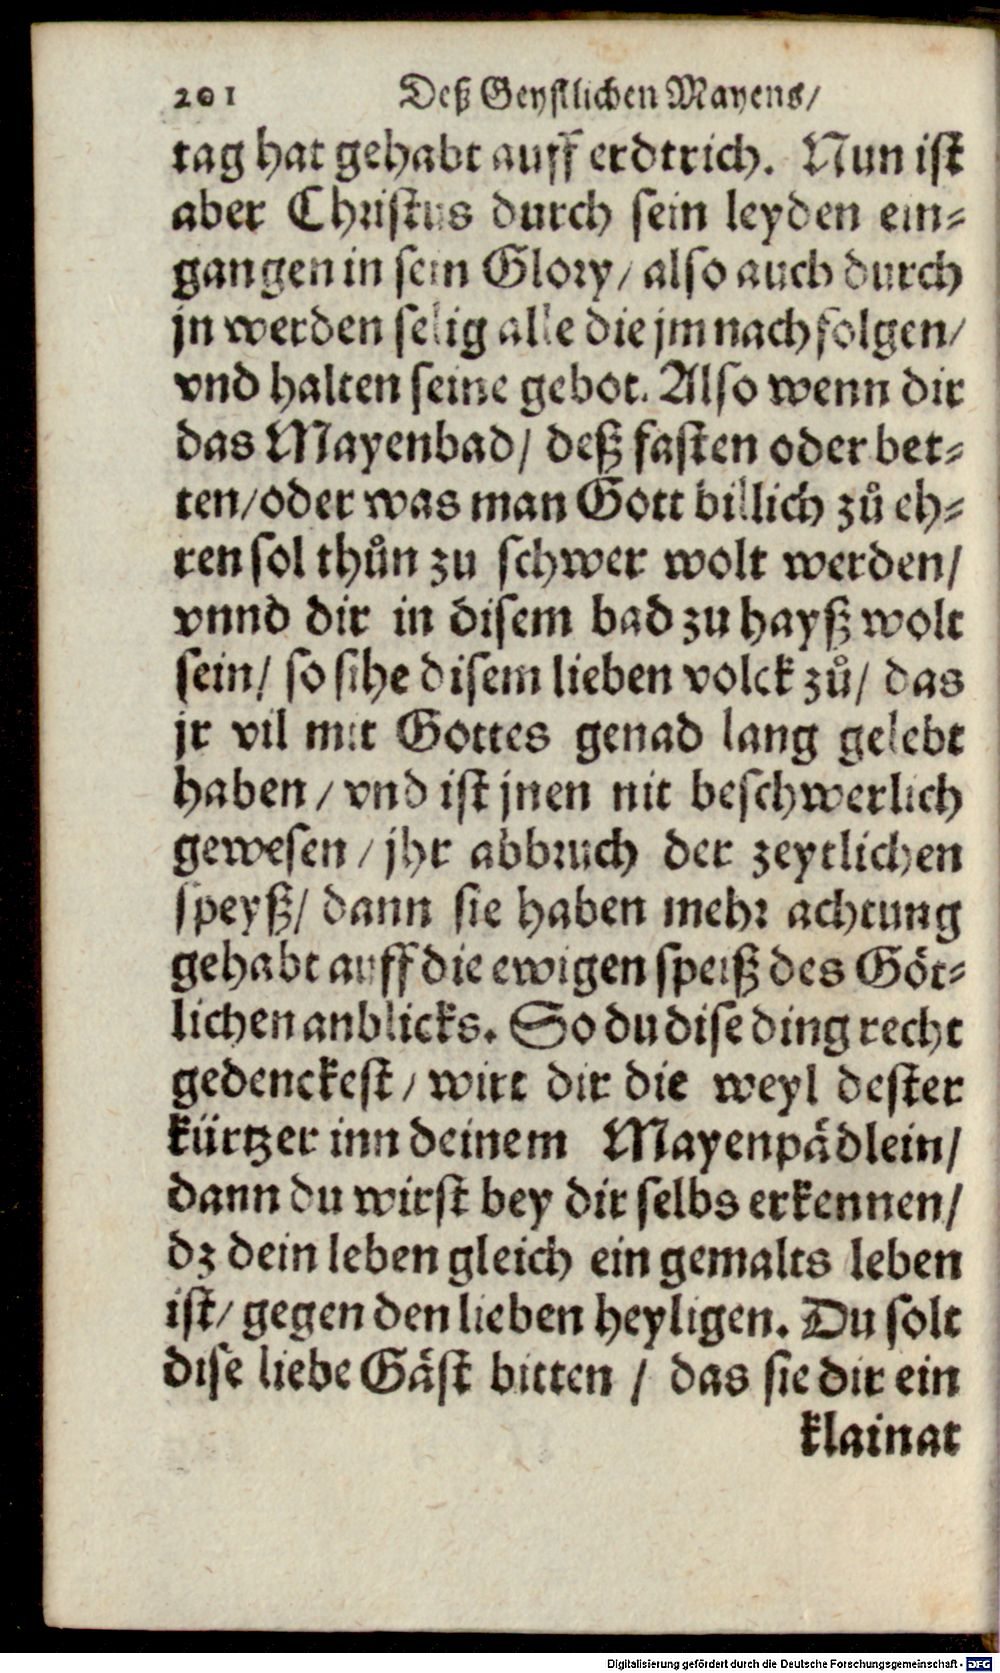 201 Deß Geystlichen Mayens/
tag hat gehabt auff erdtrich. Nun ist
aber Christus durch sein leyden ein-
gangen in sein Glory/ also auch durch
jn werden selig alle die jm nach folgen/
vnd halten seine gebot. Also wenn dir
das Mayenbad/ deß fasten oder bet-
ten/ oder was man Gott billich zů eh-
ren sol thůn zu schwer wolt werden/
vnnd dir in disem bad zu hayß wolt
sein/ so sihe disem lieben volck zů/ das
jr vil mit Gottes genad lang gelebt
haben/ vnd ist jnen nit beschwerlich
gewesen/ jhr abbruch der zeytlichen
speyß/ dann sie haben mehr achtung
gehabt auff die ewigen speiß des Göt-
lichen anblicks. So du dise ding recht
gedenckest/ wirt dir die weyl dester
kürtzer inn deinem Mayenpädlein/
dann du wirst bey dir selbs erkennen/
dz dein leben gleich ein gemalts leben
ist/ gegen den lieben heyligen. Du solt
dise liebe Gäst bitten/ das sie dir ein
klainat
Digitalisierung gefördert durch die Deutsche Forschungsgemeinschaft - DFG